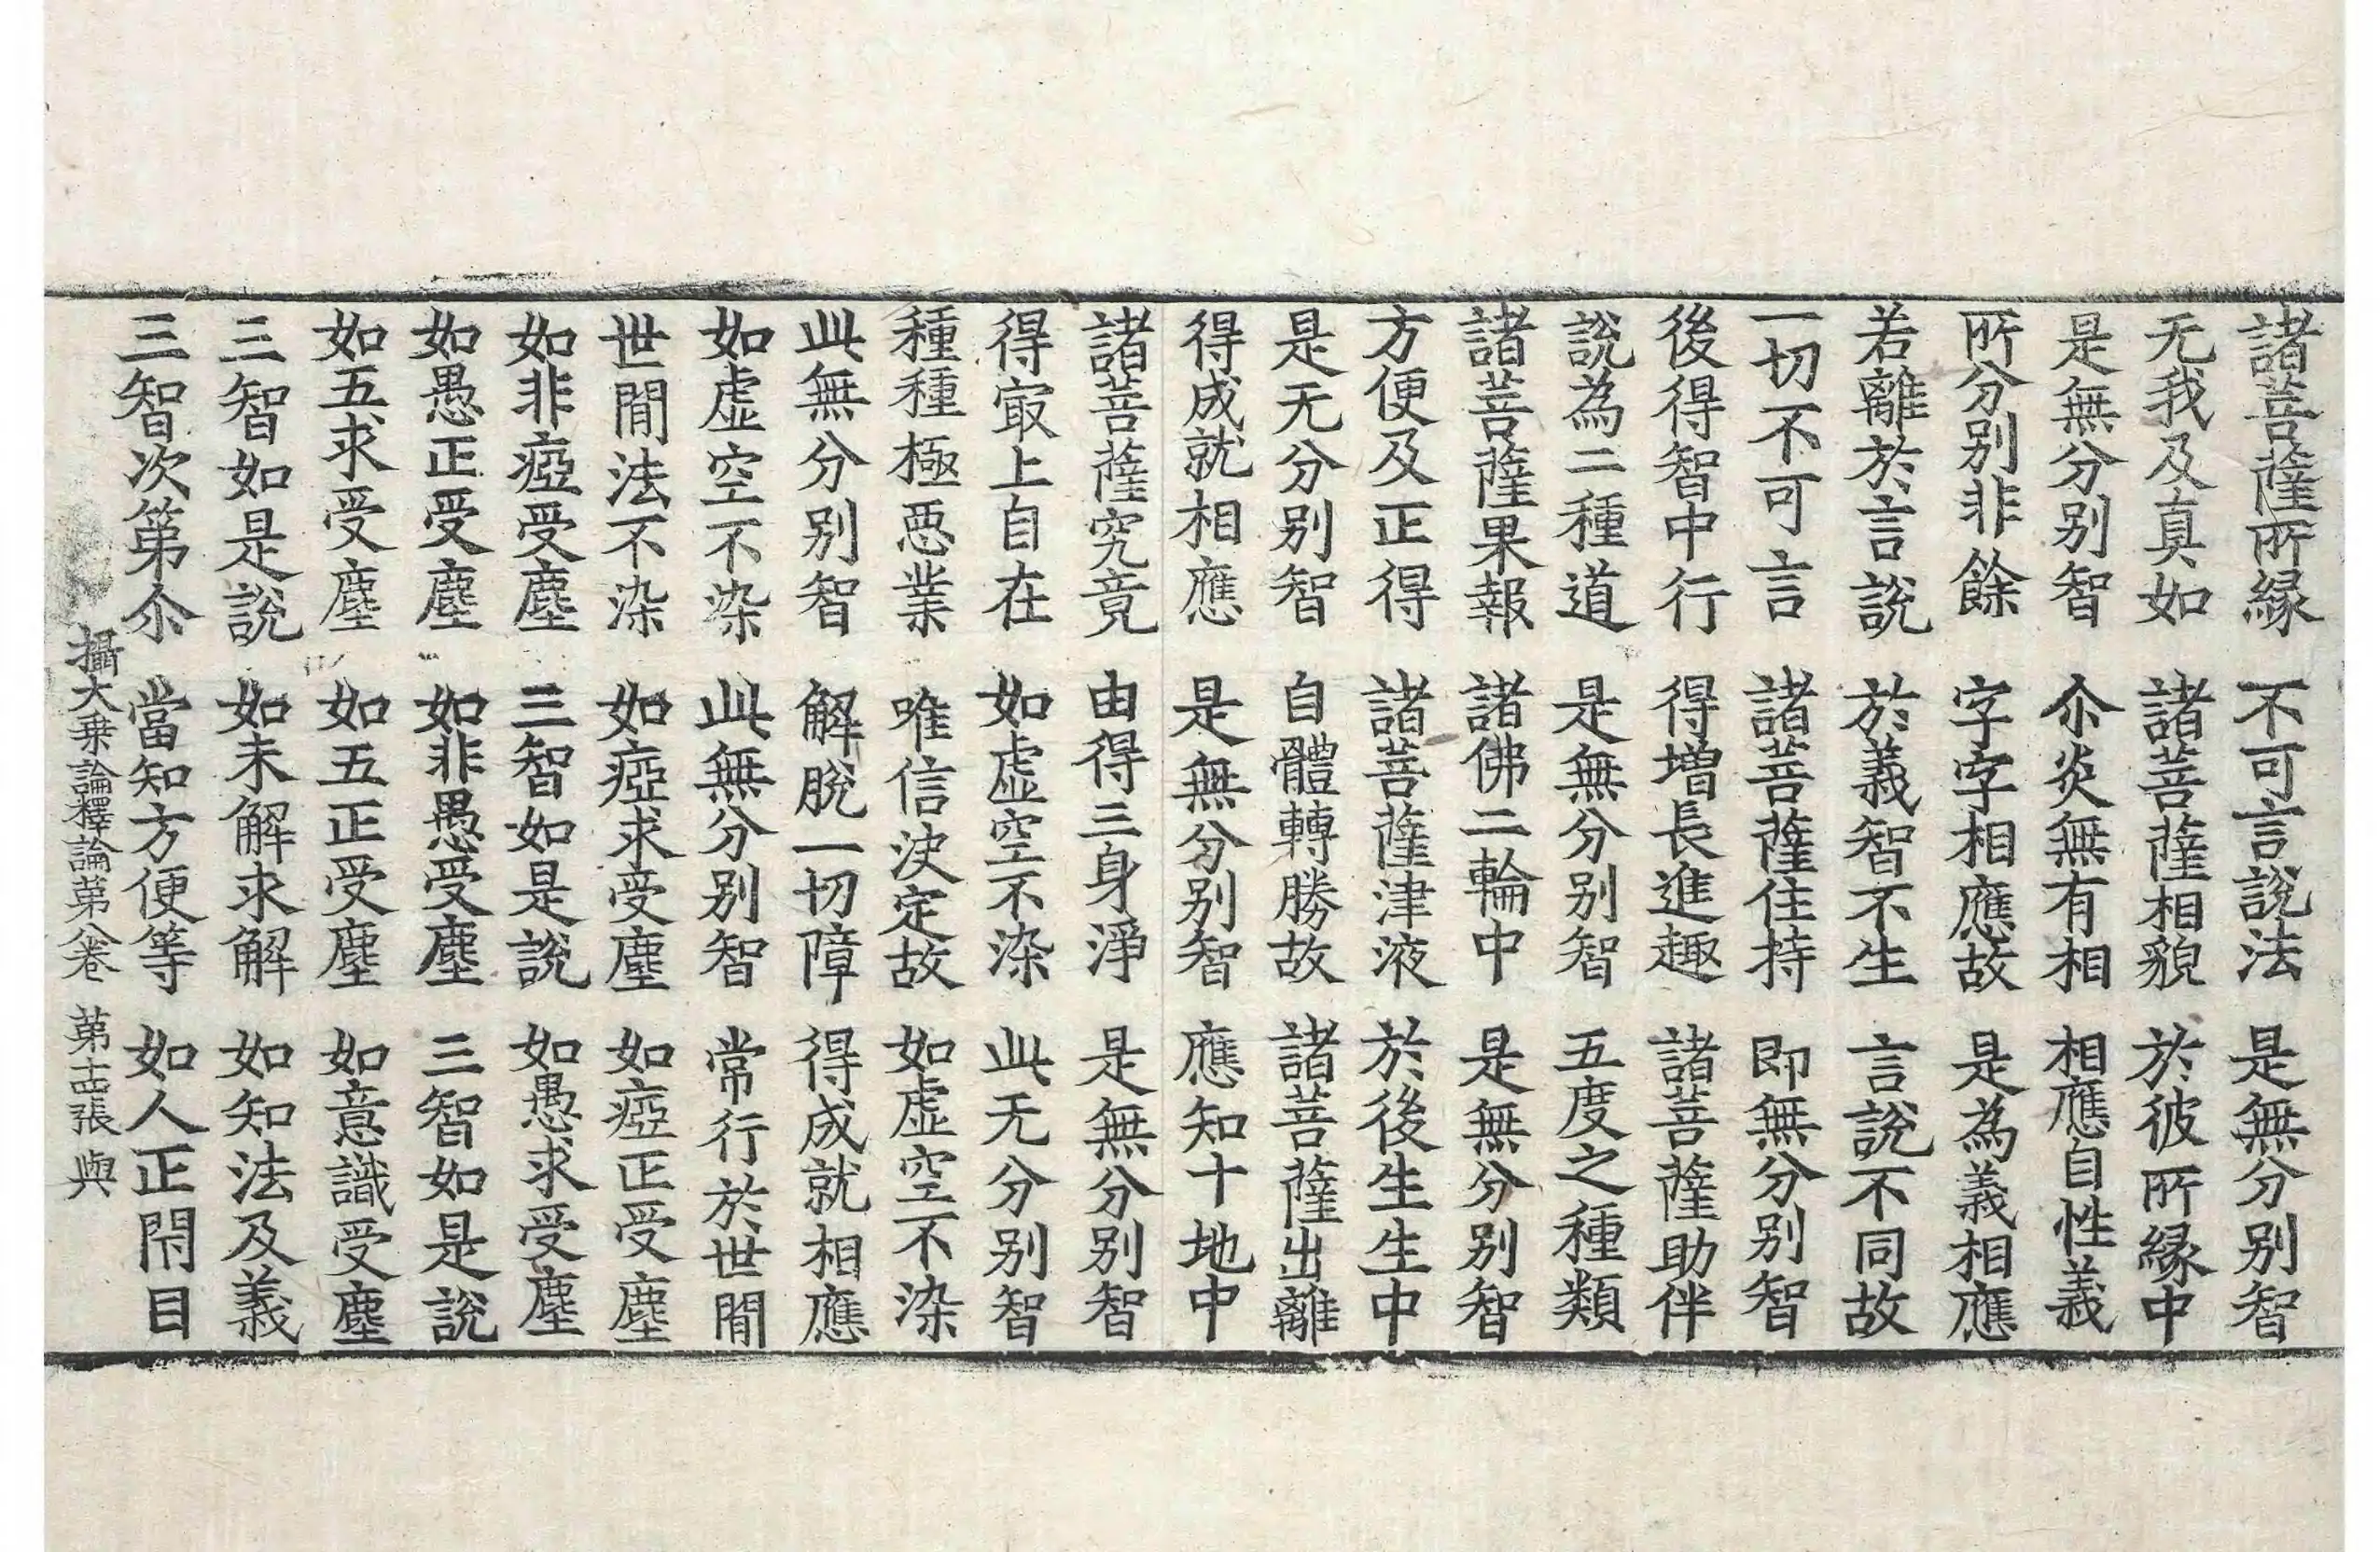 諸菩薩所縁　不可言說法　是無分别智
无我及真如　諸菩薩相貌　於彼所縁中
是無分别智　尒炎無有相　相應自性義
所分别非餘　字字相應故　是為義相應
若離於言說　於義智不生　言說不同故
一切不可言　諸菩薩住持　即無分别智
後得智中行　得增長進趣　諸菩薩助伴
說為二種道　是無分别智　五度之種類
諸菩薩果報　諸佛二輪中　是無分别智
方便及正得　諸菩薩津液　於後生生中
是无分别智　自體轉勝故　諸菩薩出離
得成就相應　是無分别智　應知十地中
諸菩薩究竟　由得三身淨　是無分别智
得㝡上自在　如虛空不染　此无分别智
種種極惡業　唯信決定故　如虛空不染
此無分别智　解脫一切障　得成就相應
如虛空不染　此無分别智　常行於世間
世間法不染　如瘂求受塵　如瘂正受塵
如非瘂受塵　三智如是說　如愚求受塵
如愚正受塵　如非愚受塵　三智如是說
如五求受塵　如五正受塵　如意識受塵
三智如是說　如未解求解　如知法及義
三智次第尒　當知方便等　如人正閇目
攝大乗論釋論第八卷　第十四張　與